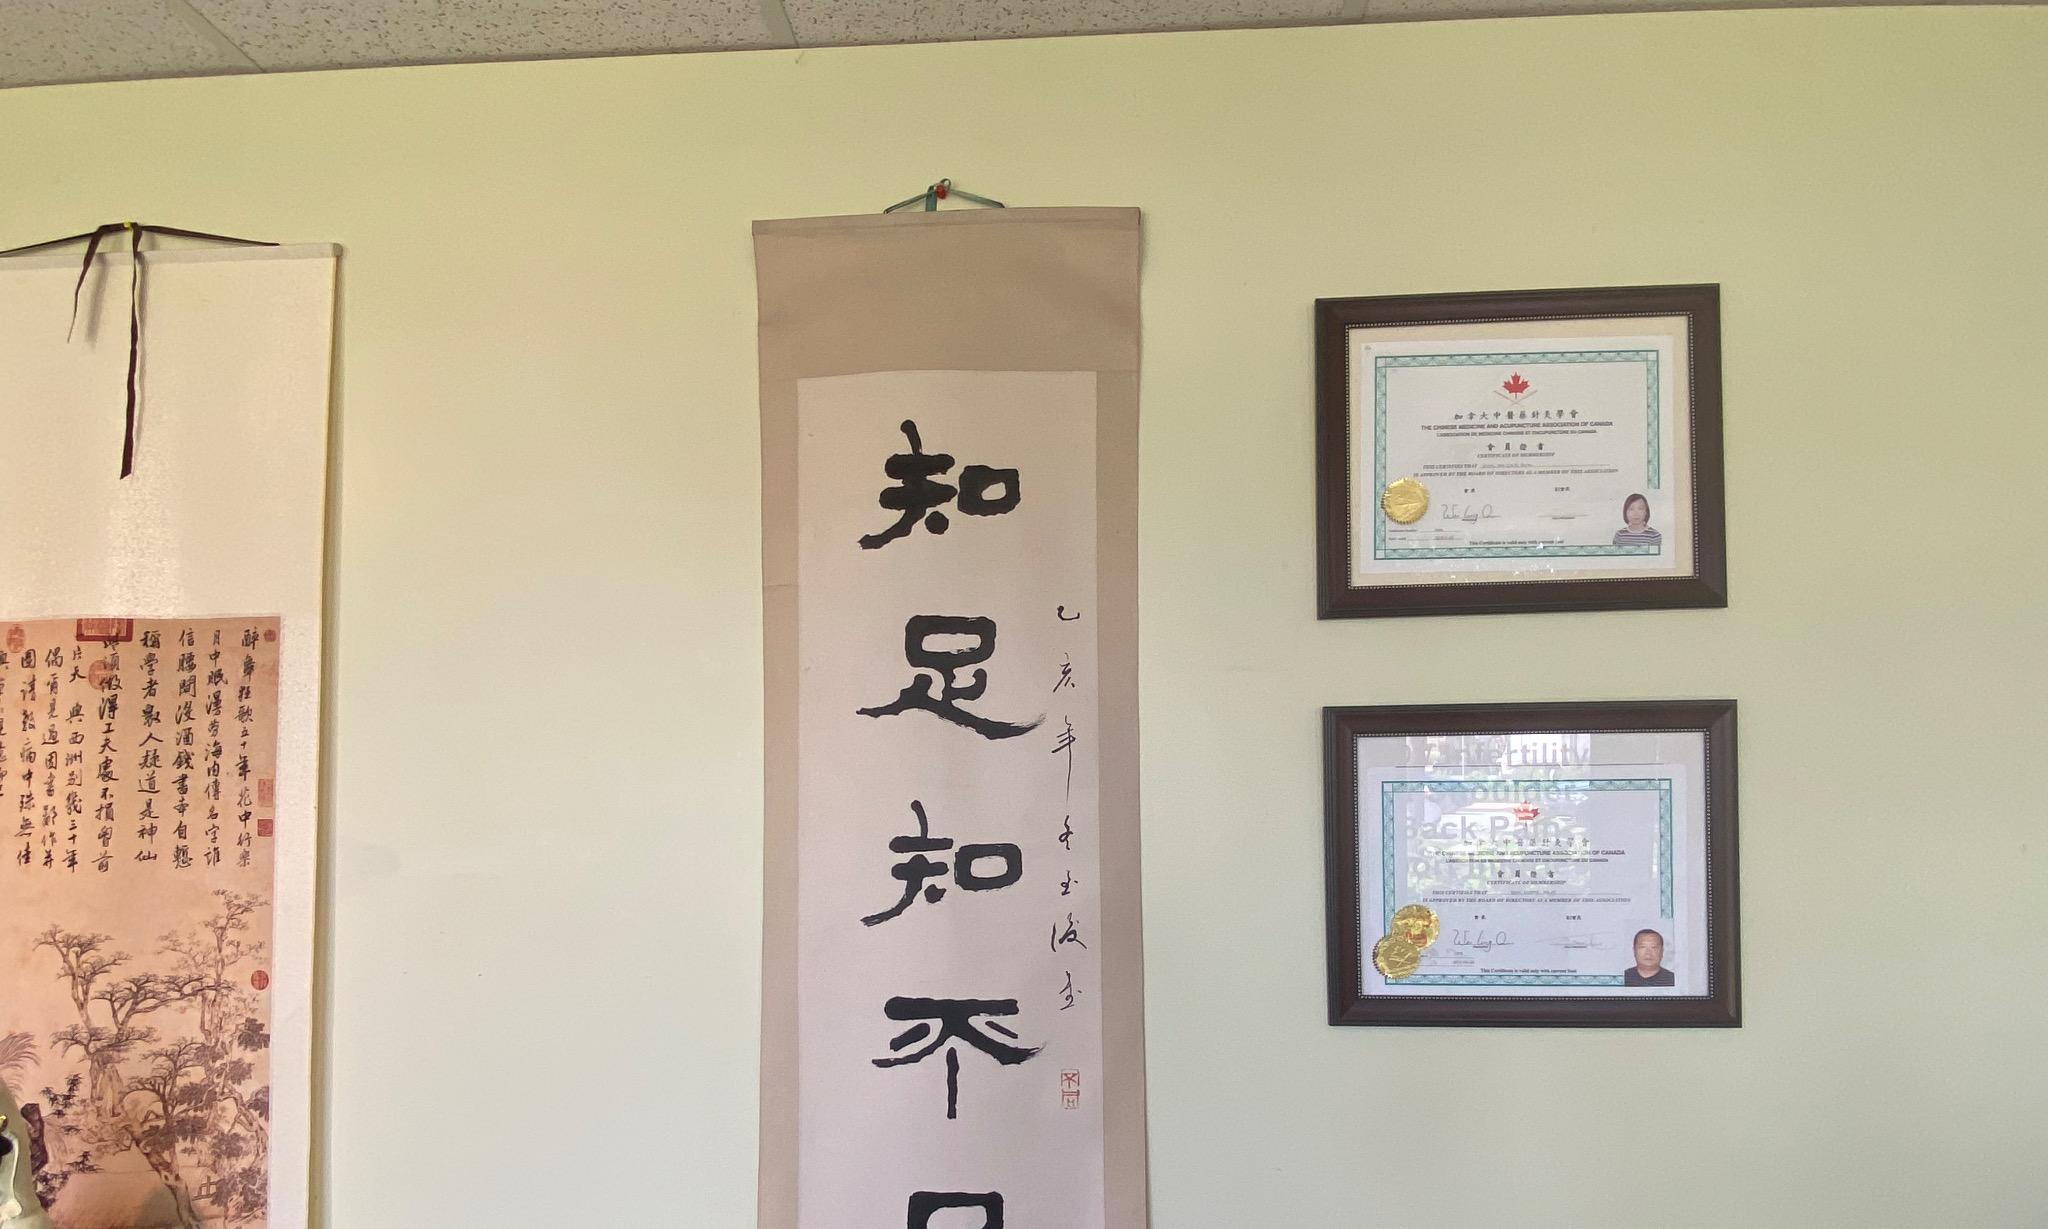 醉舞狂歌五十年花中行樂
月中眠漫勞海內傳名字誰
信腰間沒酒錢書本自慙
稱學者衆人疑道是神仙
須做得工夫處不損胷前
片天 與西洲別幾三十年
偶爾見過因書鄙作并
圖請教病中殊無佳
知足知不
乙亥年冬
加拿大中醫藥針灸學會
THE CHINESE MEDICINE AND ACUPUNCTURE ASSOCIATION OF CANADA
L'ASSOCIATION DE MEDECINE CHINOISE ET D'ACUPUNCTURE DU CANADA
會員證書
CERTIFICATE OF MEMBERSHIP
THIS CERTIFIES THAT
IS APPROVED BY THE BOARD OF DIRECTORS AS A MEMBER OF THIS ASSOCIATION
會長 副會長
This Certificate is valid only with current
Infertility
Back Pain
加拿大中醫藥針灸學會
CHINESE MEDICINE AND ACUPUNCTURE ASSOCIATION OF CANADA
L'ASSOCIATION DE MEDECINE CHINOISE ET D'ACUPUNCTURE DU CANADA
會員證書
CERTIFICATE OF MEMBERSHIP
THIS CERTIFIES THAT
IS APPROVED BY THE BOARD OF DIRECTORS AS A MEMBER OF THIS ASSOCIATION
會長 副會長
This Certificate is valid only with current